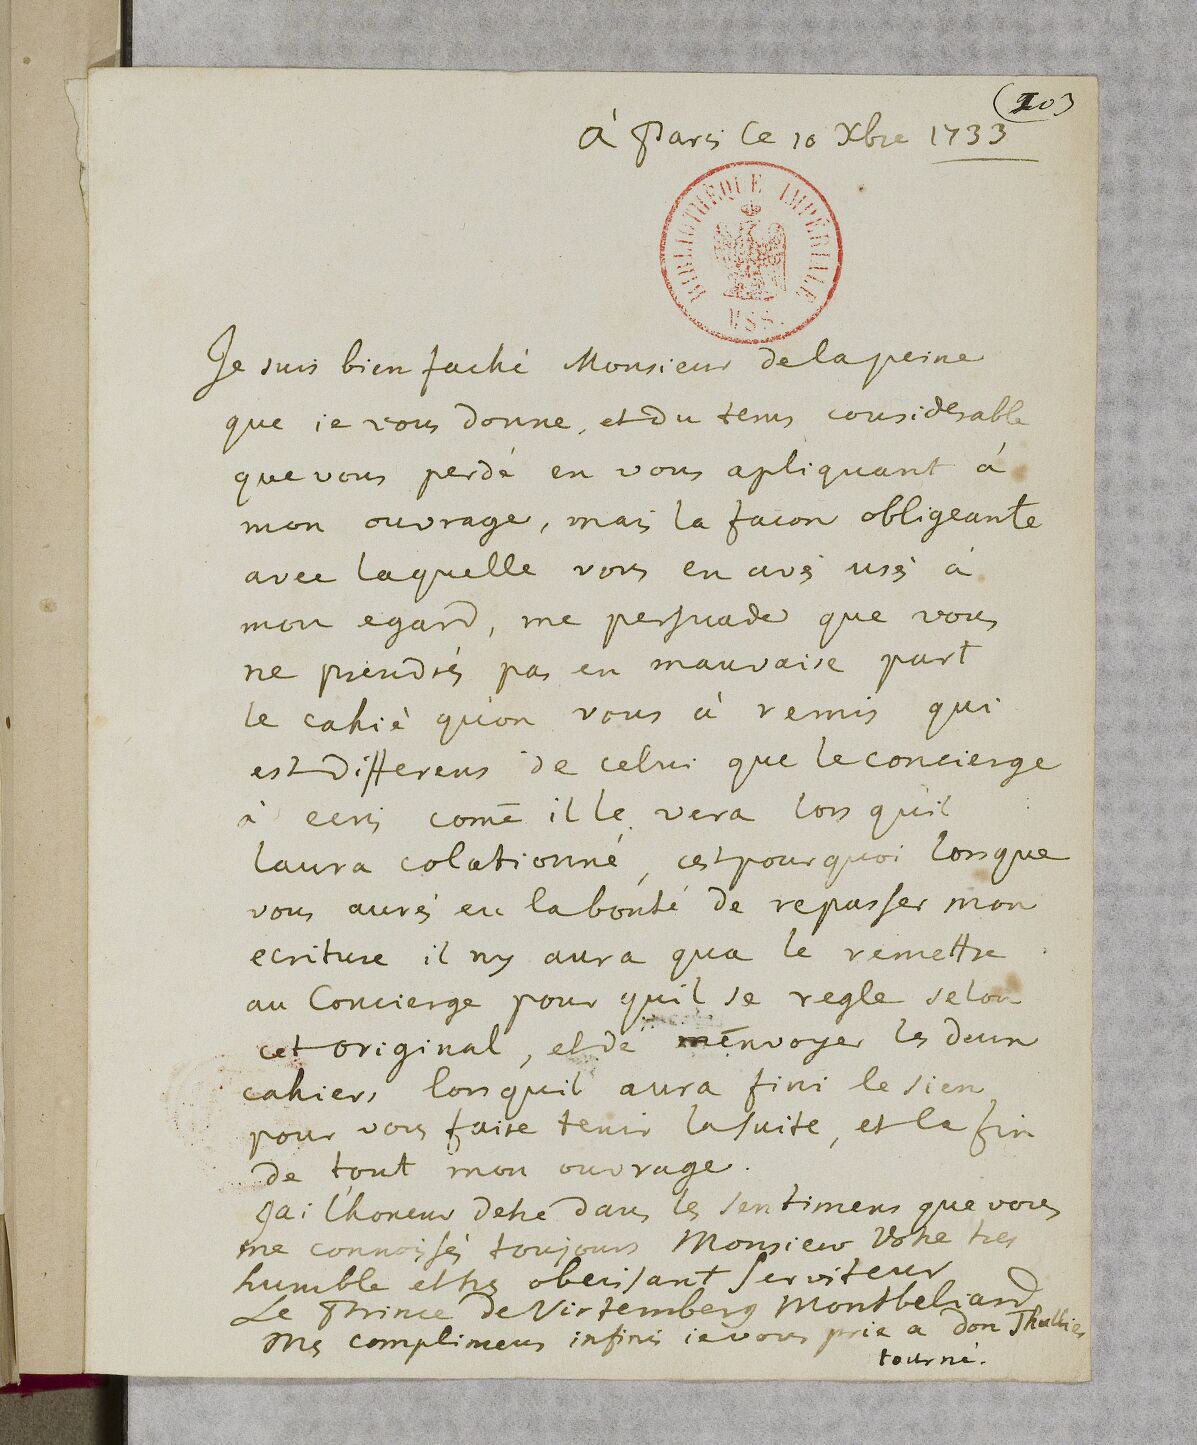 (203
à Paris Ce 10 Xbre 1733
BIBLIOTHEQUE IMPERIALE
MSS.
Je suis bien faché Monsieur de la peine
que ie vous donne, et du tems considerable
que vous perdé en vous apliquant á
mon ouvrage, mais la facon obligeante
avec laquelle vous en avés usés á
mon egard, me persuade que vous
ne prendrés pas en mauvaise part
le cahié qu'on vous á remis qui
est differens de celui que le concierge
á ecris comē il le vera lors quil
laura colationné, cest pourquoi lorsque
vous aurés eu la bonté de repasser mon
ecriture il ny aura qua le remettre
au Concierge pour quil se regle selon
cet original, et de mēnvoyer les deux
cahiers lorsquil aura fini le sien
pour vous faire tenir la suite, et la fin
de tout mon ouvrage.
Jai l'honeur detre dans les sentimens que vous
me connoissés toujours Monsieur Votre tres
humble et tres obeissant Serviteur
Le Prince de Virtemberg Montbeliard
Mes complimens infinis ie vous prie a don
tourné.